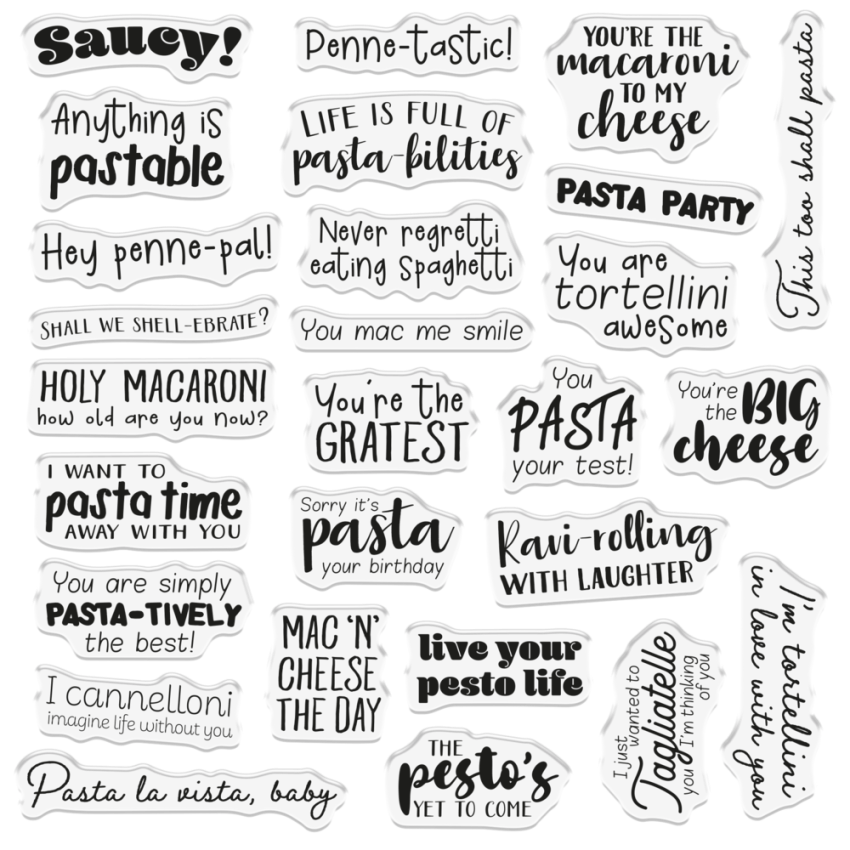 Saucy!
Penne-tastic!
YOU'RE THE
macaroni
TO MY
cheese
This too shall pasta
Anything is
pastable
LIFE IS FULL OF
pasta-bilities
PASTA PARTY
Hey penne-pal!
Never regretti
eating Spaghetti
You are
tortellini
aweSome
SHALL WE SHELL-EBRATE?
You mac me smile
HOLY MACARONI
how old are you now?
You're the
GRATEST
You
PASTA
your test!
You're
the BIG
cheese
I WANT TO
pasta time
AWAY WITH YOU
Sorry it's
pasta
your birthday
Ravi-rolling
WITH LAUGHTER
You are simply
PASTA-TIVELY
the best!
MAC 'N'
CHEESE
THE DAY
live your
pesto life
I just
wanted to
Tagliatelle
you I'm thinking
of you
I'm tortellini
in love with you
I cannelloni
imagine life without you
THE
pesto's
YET TO COME
Pasta la vista, baby